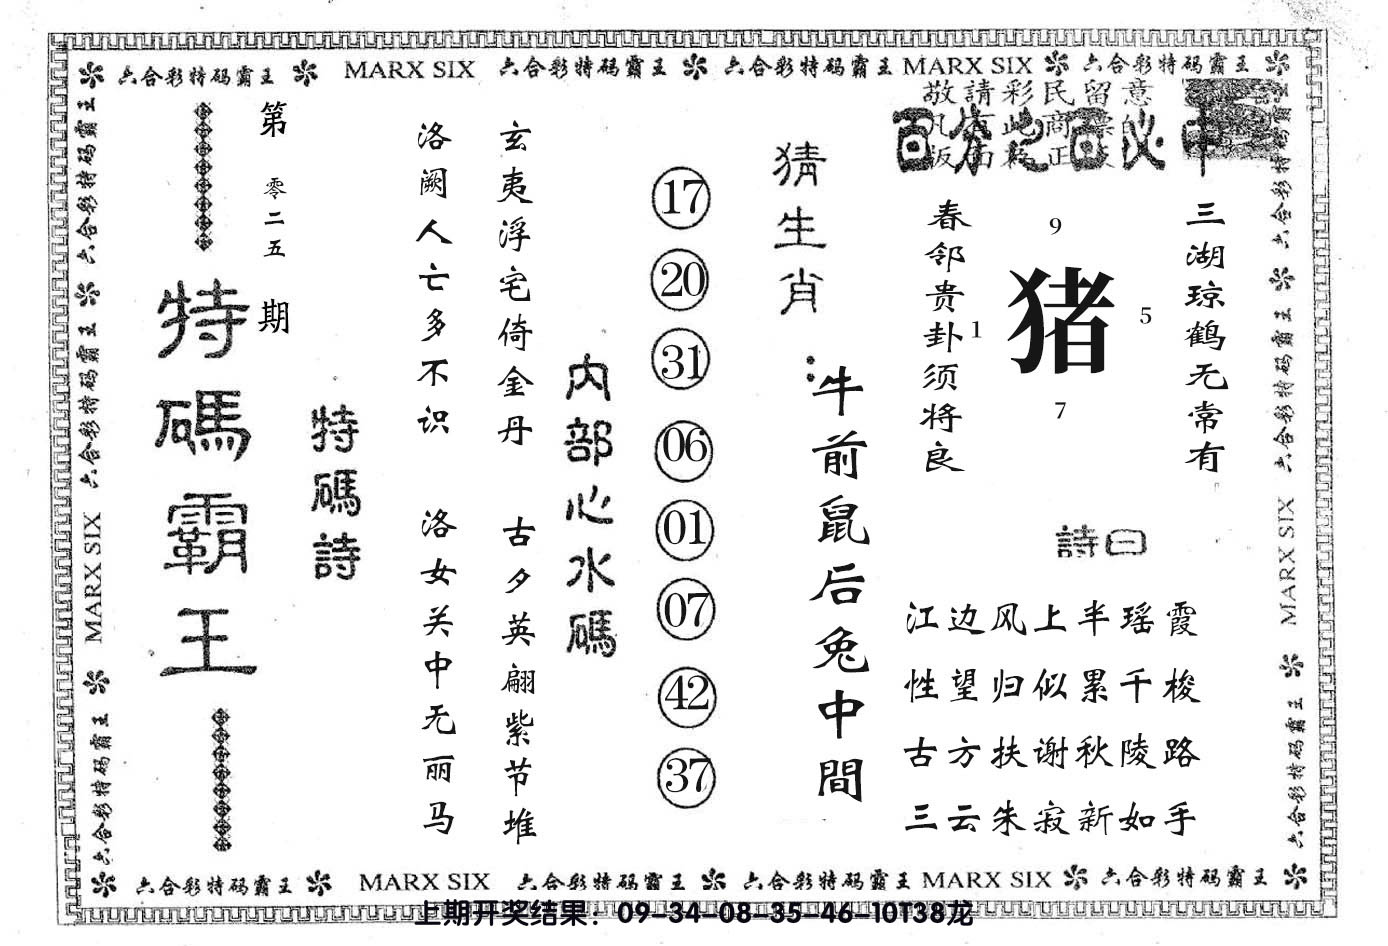 六合彩特码霸王 MARX SIX 六合彩特码霸王 六合彩特码霸王 MARX SIX 六合彩特码霸王
敬請彩民留意
百分之百必中
三湖琼鹤无常有
春邻贵卦须将良
9
1
猪
5
7
詩曰
江边风上半瑶霞
性望归似累千梭
古方扶谢秋陵路
三云朱寂新如手
猜生肖:
牛前鼠后兔中間
17
20
31
06
01
07
42
37
内部心水碼
玄夷浮宅倚金丹
古夕英翩紫节堆
洛阙人亡多不识
洛女关中无丽马
特碼詩
第零二五期
特碼霸王
六合彩特码霸王 六合彩特码霸王 MARX SIX 六合彩特码霸王
六合彩特码霸王 六合彩特码霸王 MARX SIX 六合彩特码霸王
六合彩特码霸王 MARX SIX 六合彩特码霸王 六合彩特码霸王 MARX SIX 六合彩特码霸王
上期开奖结果：09-34-08-35-46-10T38龙